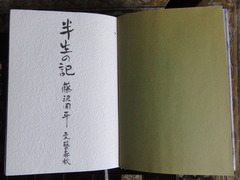 半生の記
藤沢周平
文藝春秋